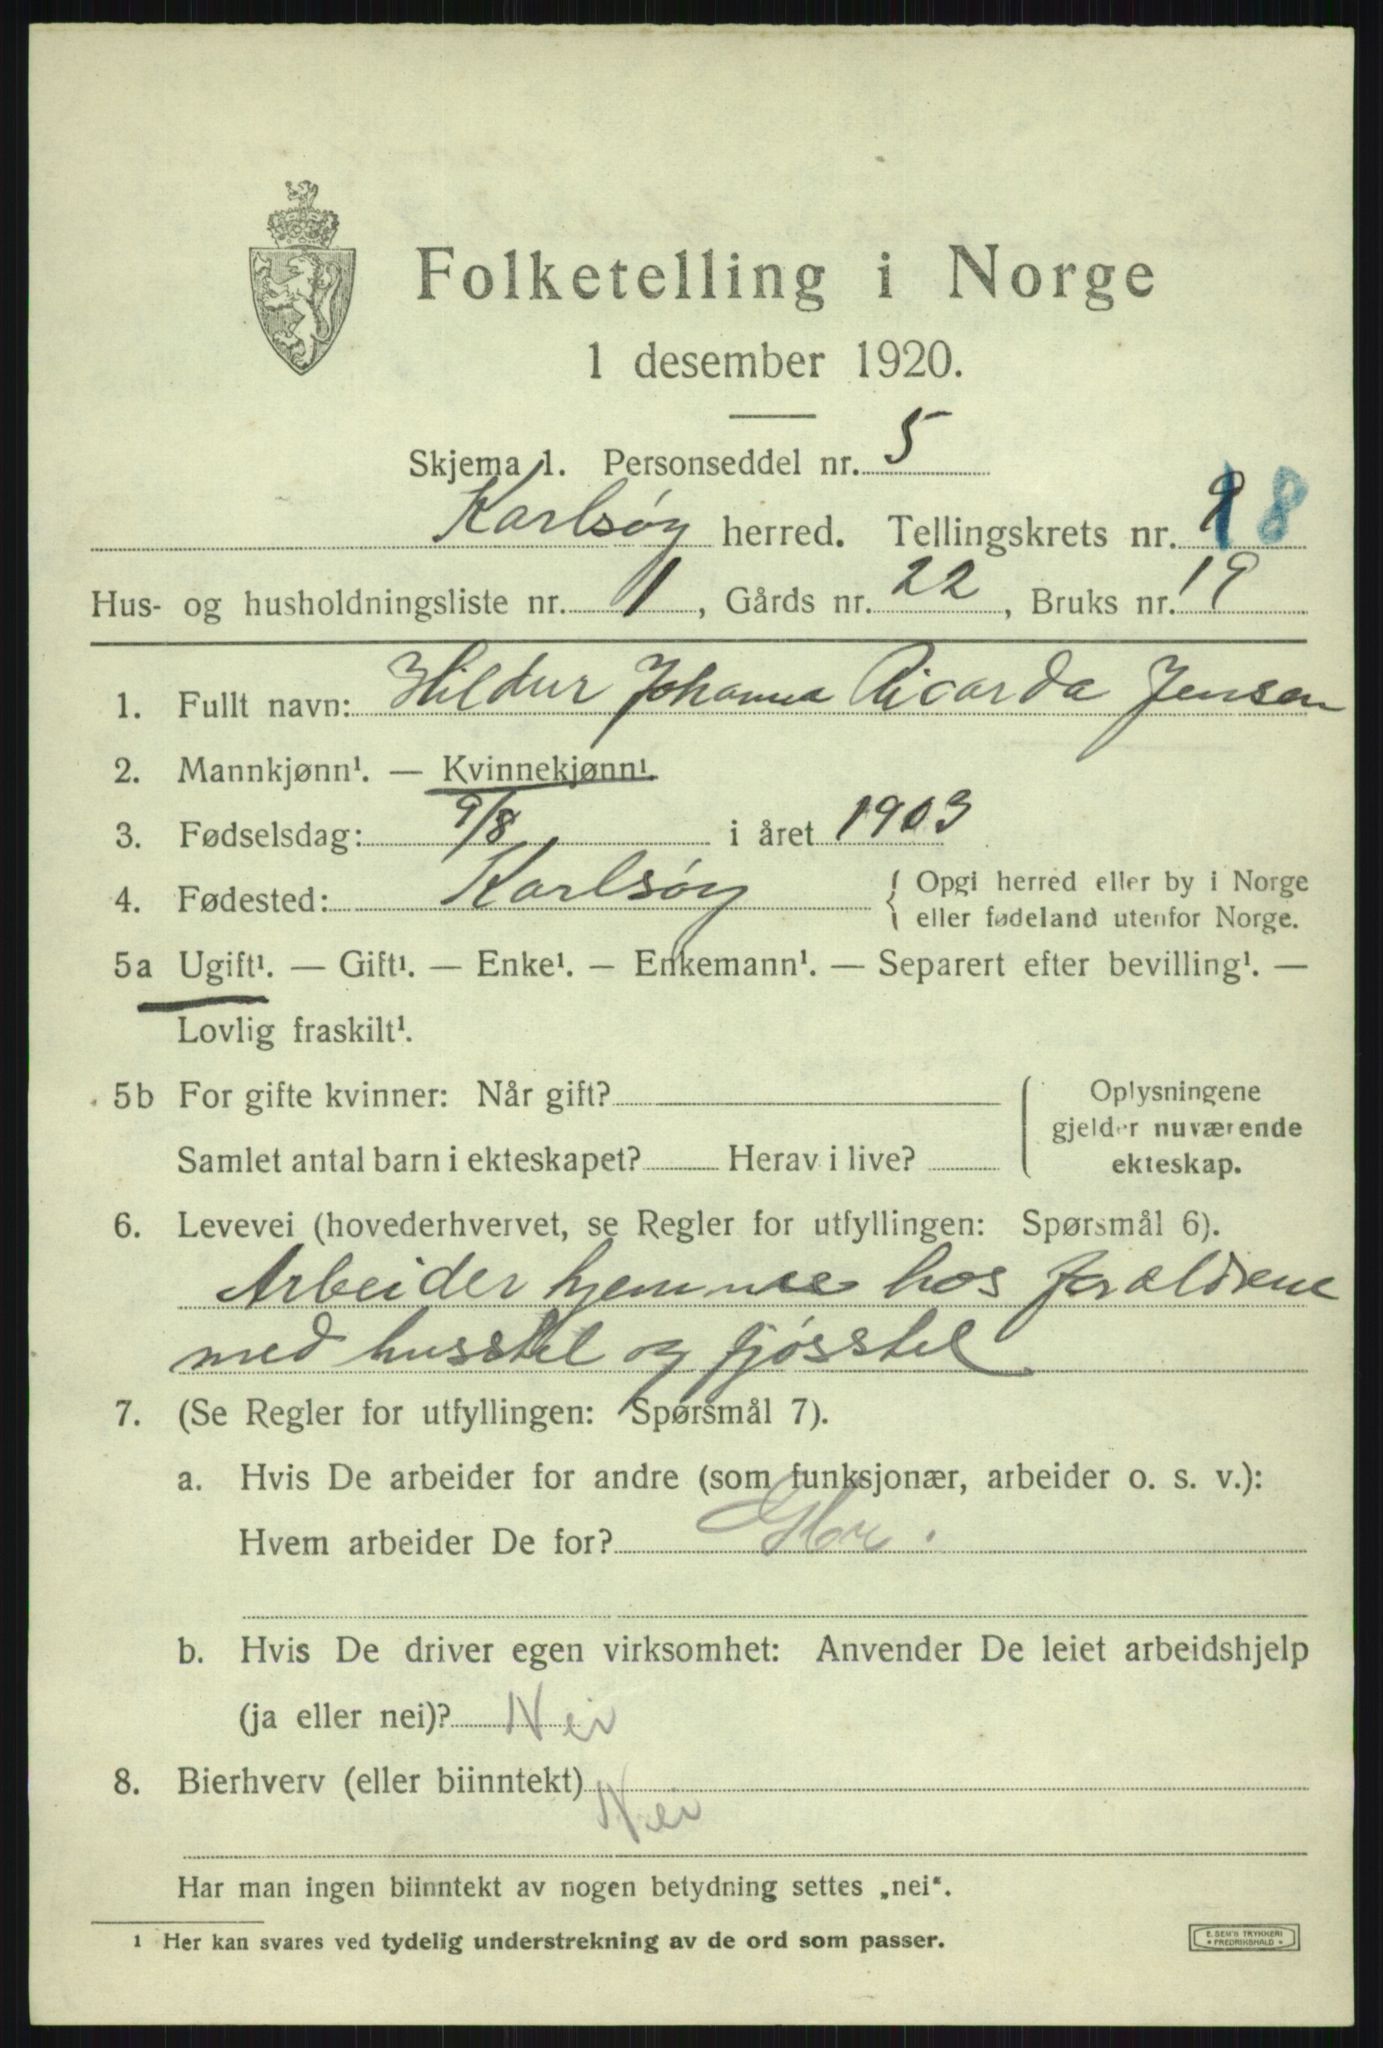 Folketelling i Norge
1 desember 1920.
Skjema 1. Personseddel nr. 5
Karlsøy herred. Tellingskrets nr. 8
Hus- og husholdningsliste nr. 1, Gårds nr. 22, Bruks nr. 19
1. Fullt navn: Hildur Johanna Ricarda Jensen
2. Mannkjønn¹. — Kvinnekjønn¹.
3. Fødselsdag: 9/8 i året 1903
4. Fødested: Karlsøy { Opgi herred eller by i Norge
eller fødeland utenfor Norge.
5a Ugift¹. — Gift¹. — Enke¹. — Enkemann¹. — Separert efter bevilling¹. —
Lovlig fraskilt¹.
5b For gifte kvinner: Når gift?
Samlet antal barn i ekteskapet? Herav i live?
Oplysningene
gjelder nuværende
ekteskap.
6. Levevei (hovederhvervet, se Regler for utfyllingen: Spørsmål 6).
Arbeider hjemme hos forældrene
med husstel og fjøsstel
7. (Se Regler for utfyllingen: Spørsmål 7).
a. Hvis De arbeider for andre (som funksjonær, arbeider o. s. v.):
Hvem arbeider De for?
b. Hvis De driver egen virksomhet: Anvender De leiet arbeidshjelp
(ja eller nei)? Nei
8. Bierhverv (eller biinntekt)
Nei
Har man ingen biinntekt av nogen betydning settes „nei“.
1 Her kan svares ved tydelig understrekning av de ord som passer.
E. SEM'S TRYKKERI
* FREDRIKSHALD *